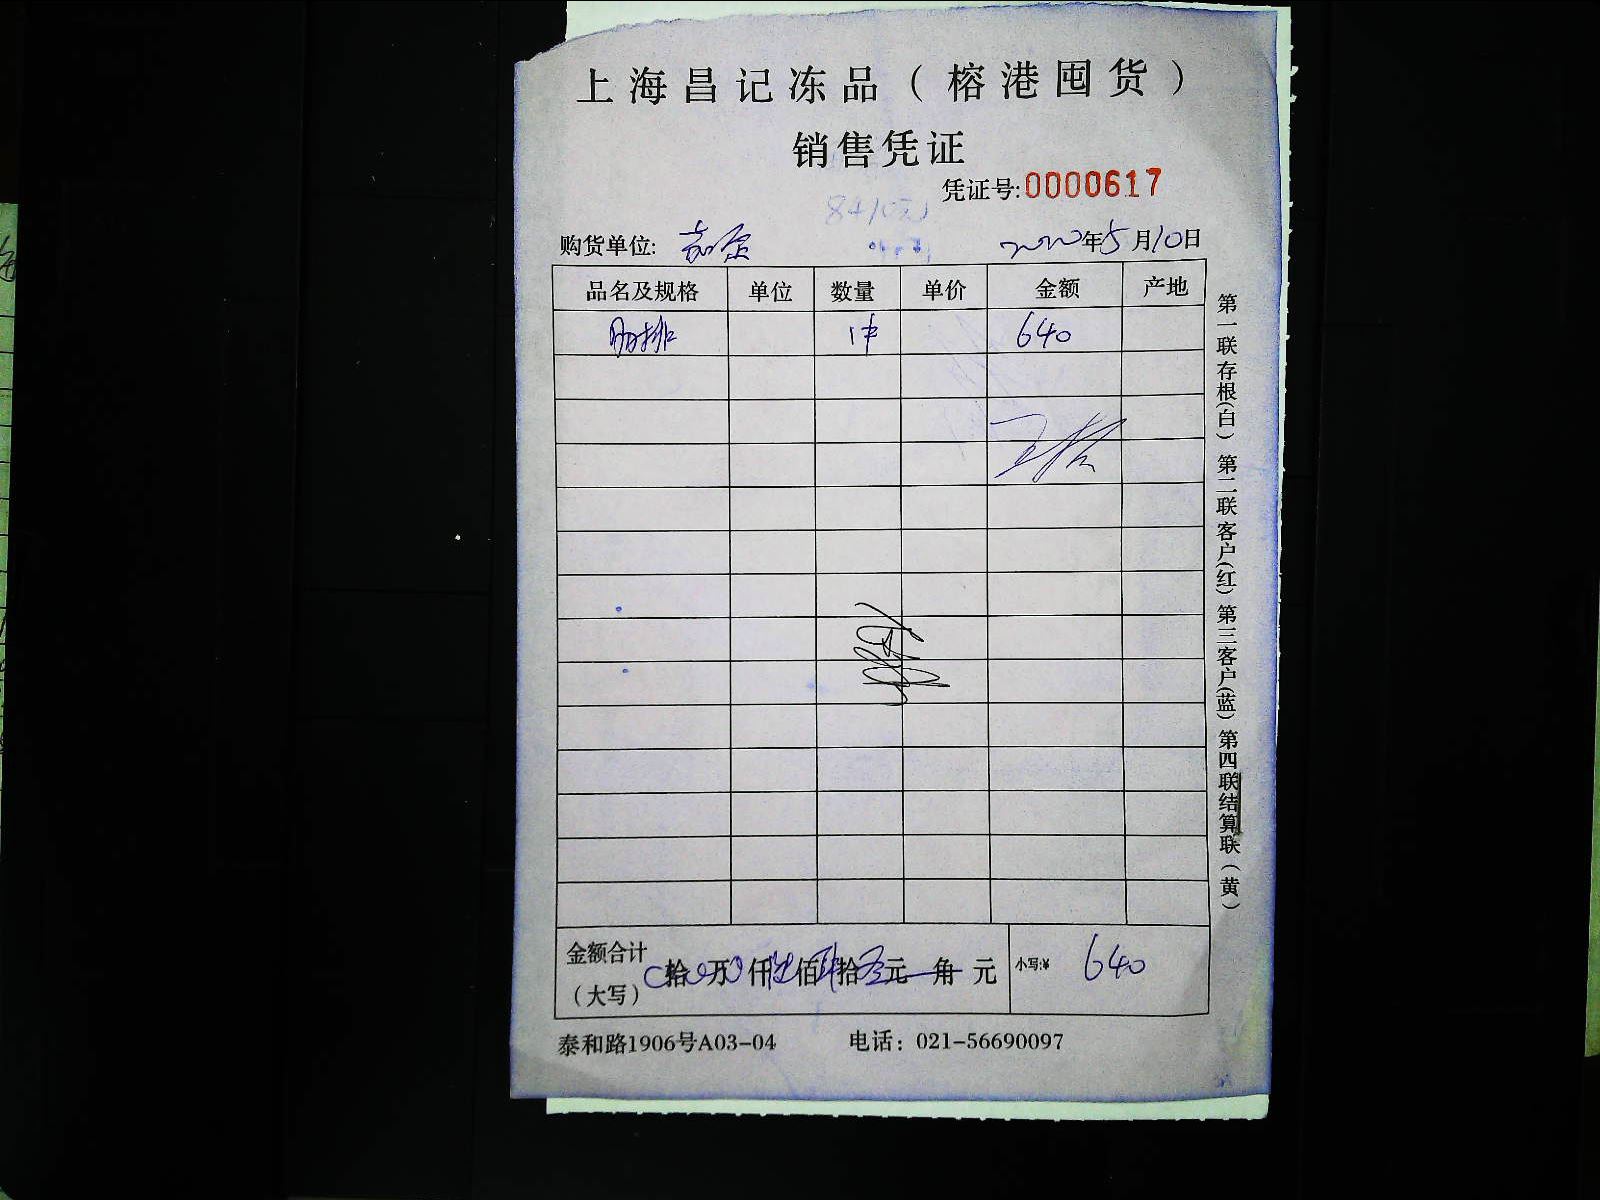 上海昌记冻品（榕港囤货）
销售凭证
凭证号:0000617
购货单位: 2020年5月10日
品名及规格 单位 数量 单价 金额 产地
肋排 1件 640
金额合计（大写） 拾 万 仟陆佰肆拾 元 角 元 小写:¥ 640
泰和路1906号A03-04 电话：021-56690097
第一联存根（白）第二联客户（红）第三客户（蓝）第四联结算联（黄）